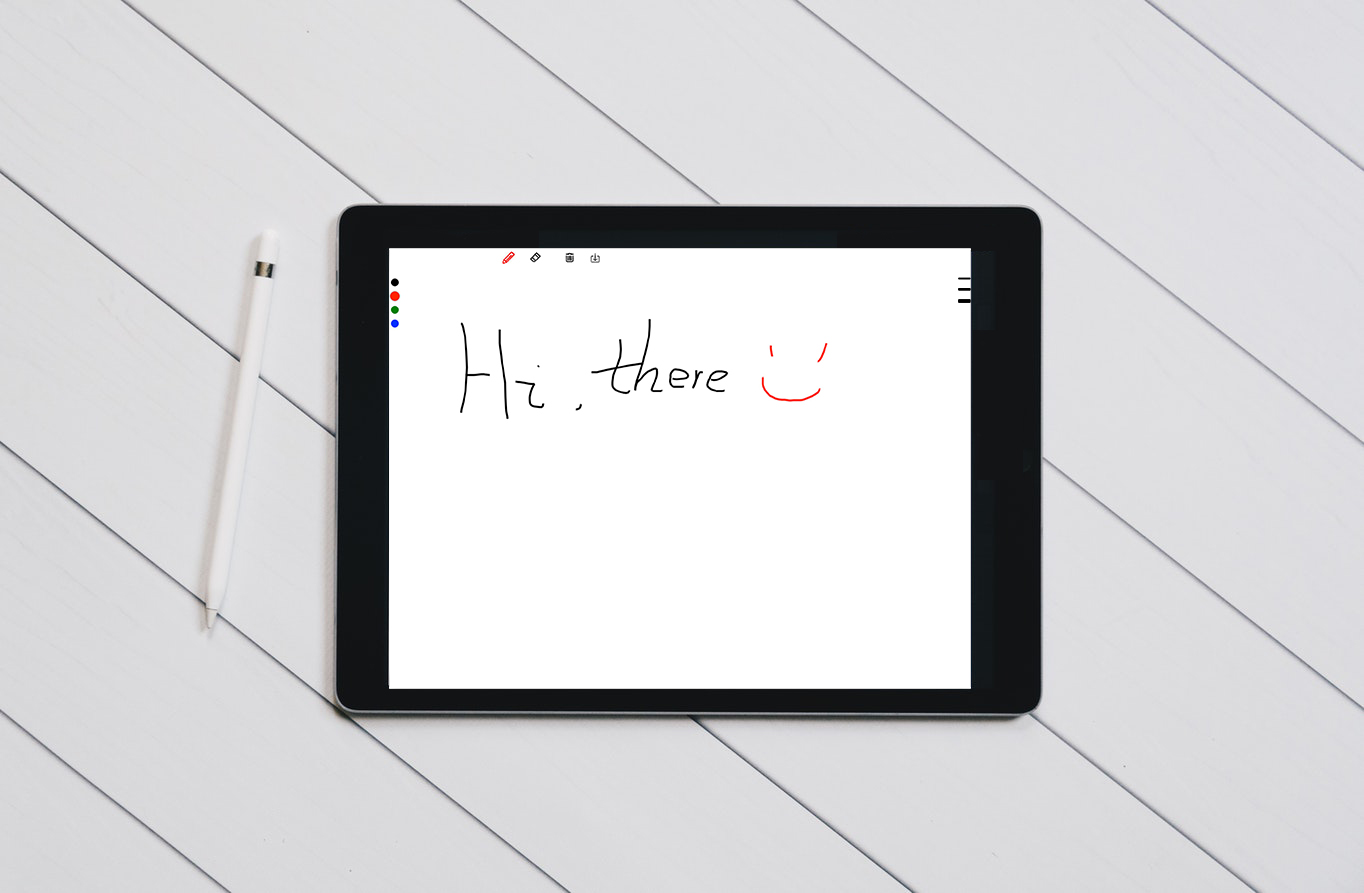 Hi, there